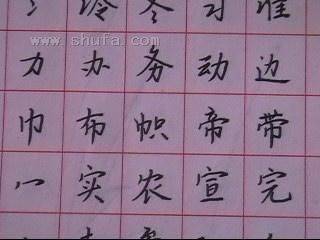 冷冬习准
www.shufa.com
力办务动边
巾布帜帝带
冖实农宣完